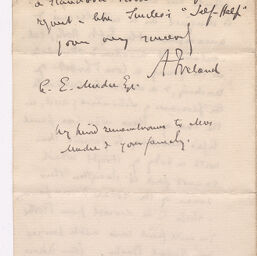 a Handbook
- like Smiles's "Self-Help"
yours very sincerely
A Ireland
C. E. Mudie Esq.
My kind remembrances to Mrs
Mudie & your family.